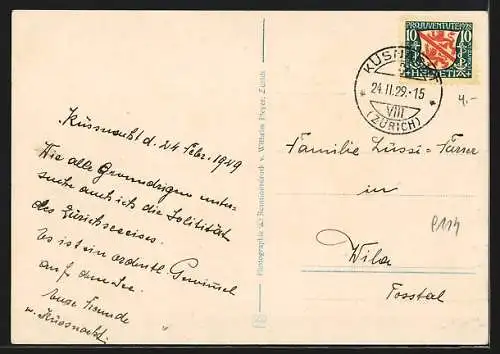 PRO JUVENTUTE 1928
10 10
HELVETIA
KÜSNACHT
24.II.29.-15
VIII
(ZÜRICH)
4.-
Küssnacht d. 24 Febr. 1929
Wie alle
suche auch ich die Solidität
des Zürichseeeises.
Es ist ein ordentl. Gewimmel
auf dem See.
Eure Freunde
v. Küssnacht.
Photographie u. v. Wilhelm Pleyer, Zürich
Familie Züssi-Furrer
in
Wila
Tösstal
P114